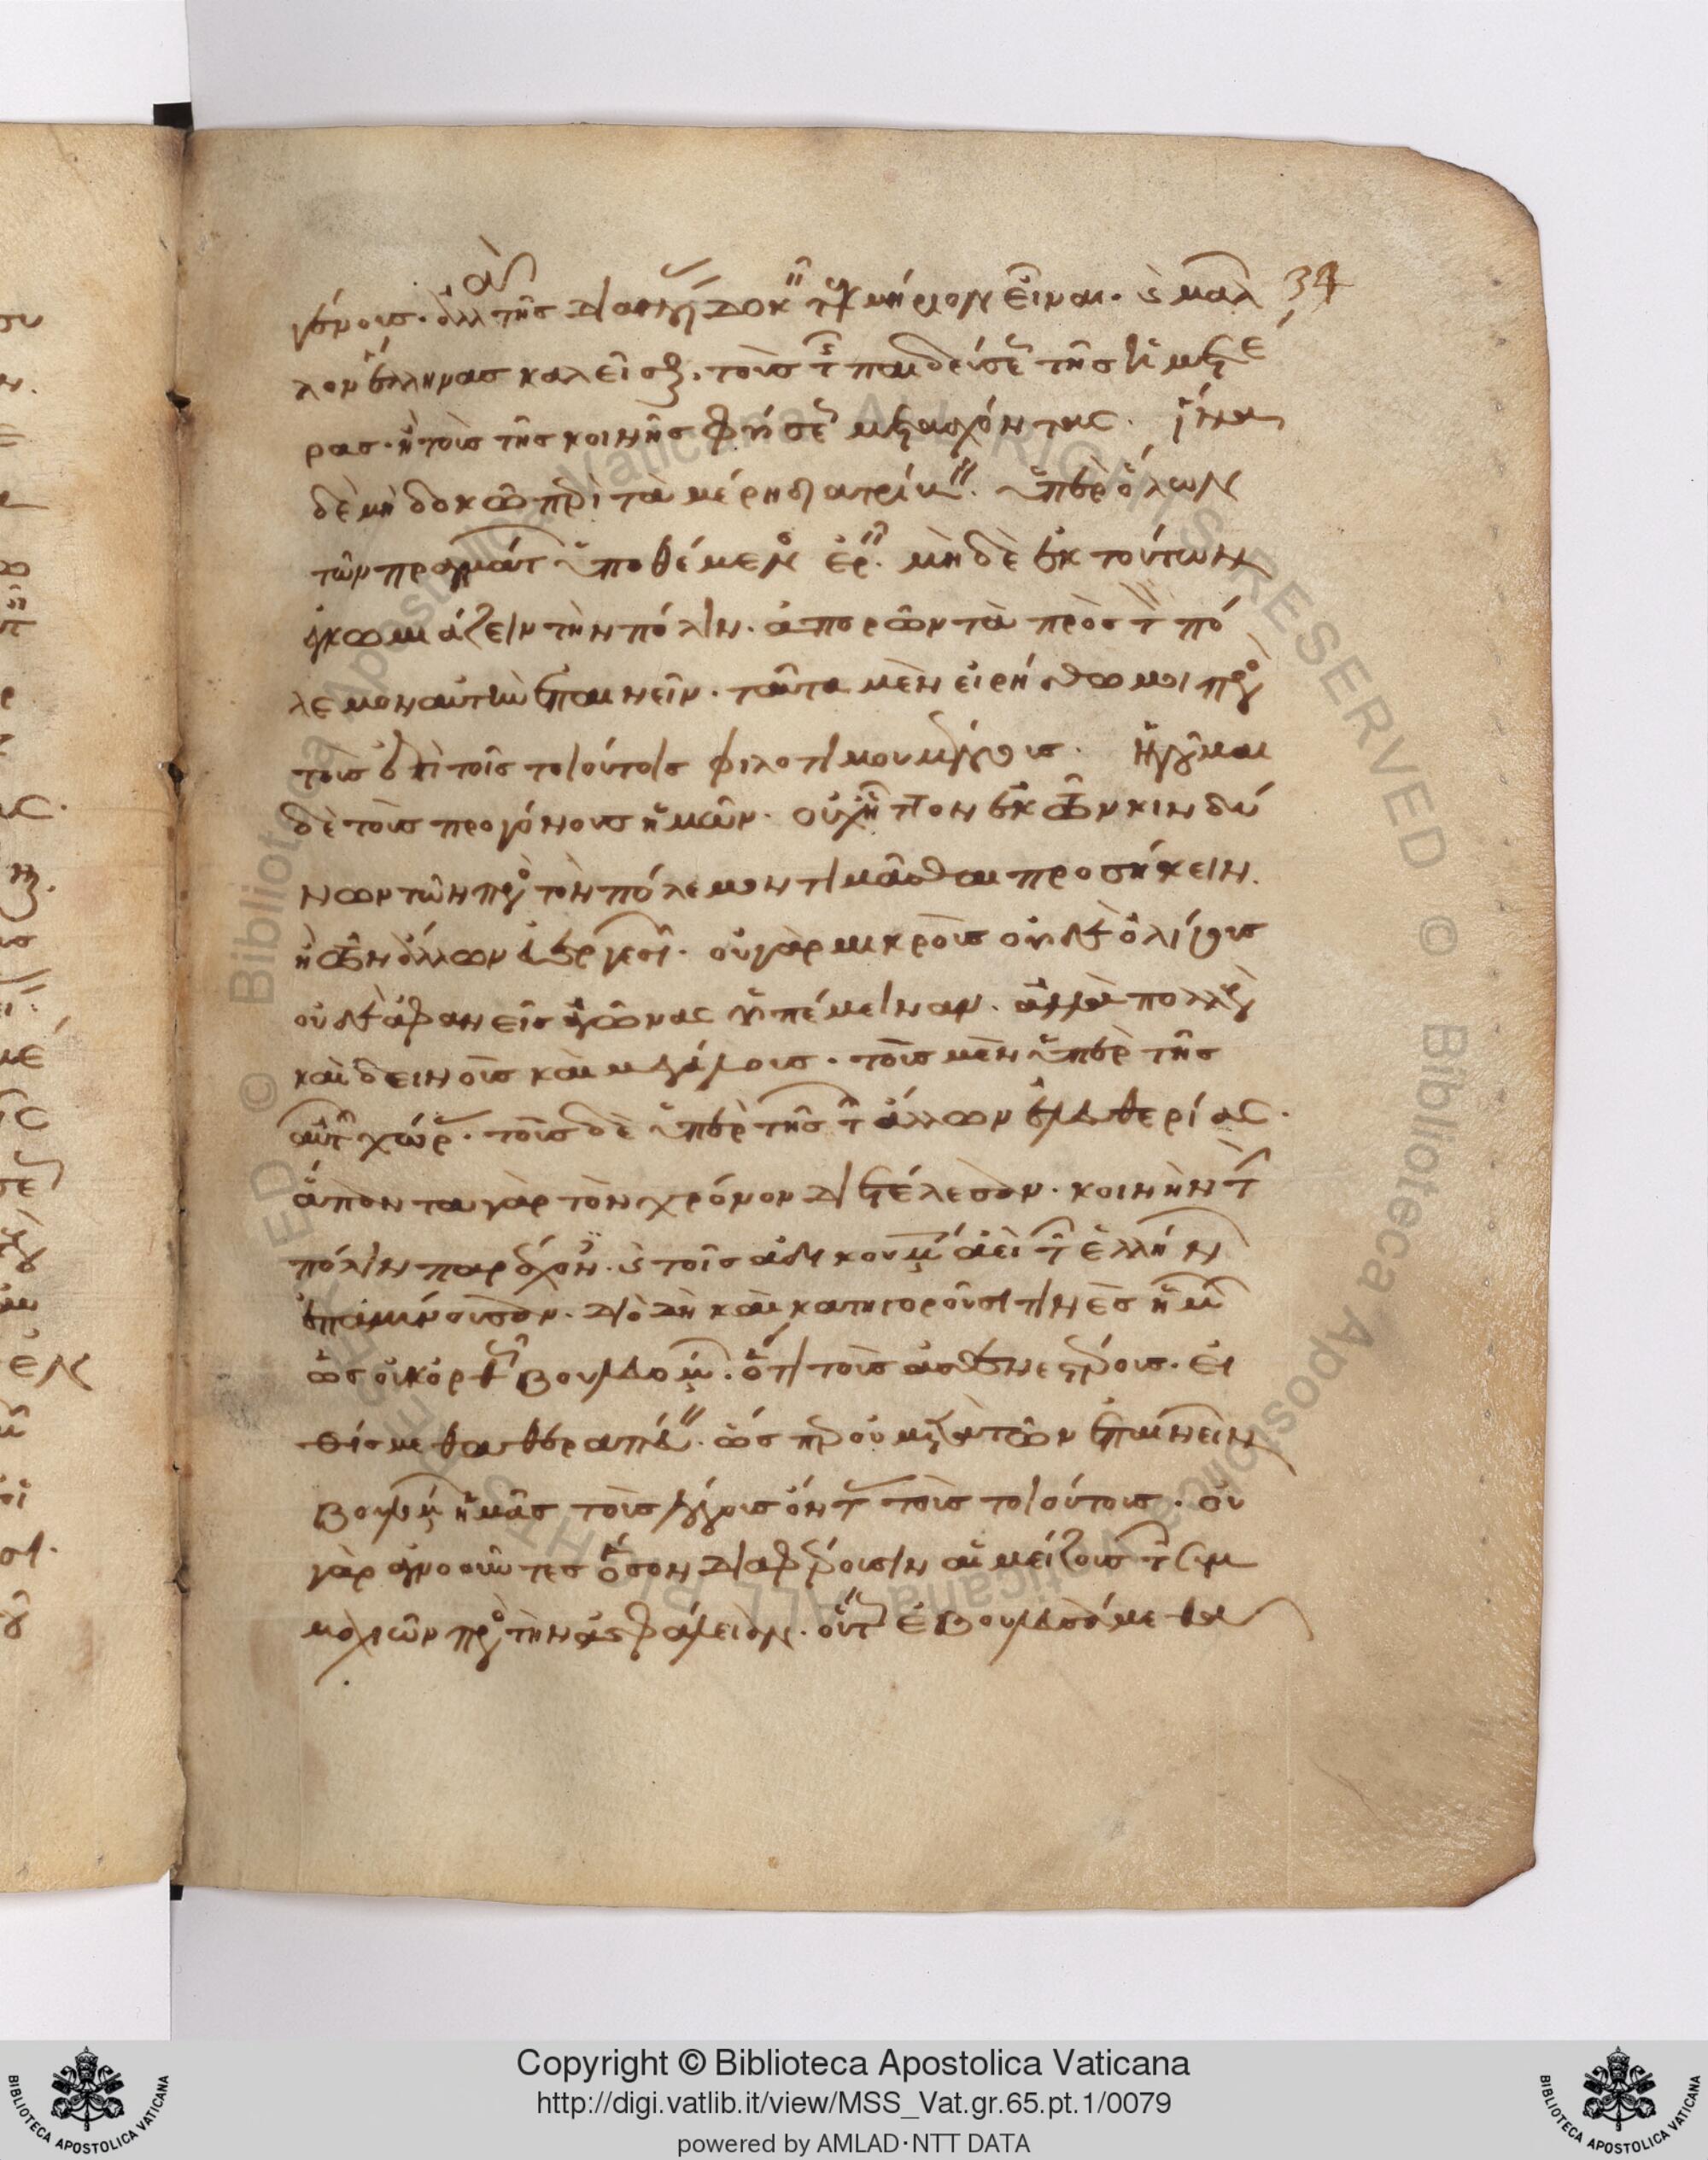 34
γένους· ἀλλὰ τῆς διανοίας δοκεῖν τεκμήριον εἶναι· καὶ μᾶλ
λον ἕλληνας καλεῖσθαι τοὺς τῆς παιδεύσεως τῆς ἡμετέ
ρας· ἢ τοὺς τῆς κοινῆς φύσεως μετασχόντας. ἵνα
δὲ μὴ δοκῶ περὶ τὰ μέρη διατρίβειν· ὑπὲρ ὅλων
τῶν πραγμάτων ὑποθέμενος ἐρεῖν· μὴ δὲ ἐκ τούτων
ἐγκωμιάζειν τὴν πόλιν· ἀπορῶν τὰ πρὸς τὸν πό
λεμον αὐτὴν ἐπαινεῖν· ταῦτα μὲν εἰρήσθω μοι πρὸς
τοὺς ἐπὶ τοῖς τοιούτοις φιλοτιμουμένους. Ἡγοῦμαι
δὲ τοὺς προγόνους ἡμῶν· οὐχ ἧττον ἐκ τῶν κινδύ
νων τῶν πρὸς τὸν πόλεμον τιμᾶσθαι προσήκειν.
ἢ τῶν ἄλλων εὐεργεσιῶν· οὐ γὰρ μικροὺς οὐδὲ ὀλίγους
οὐδὲ ἀφανεῖς ἀγῶνας ὑπέμειναν· ἀλλὰ πολλοὺς
καὶ δεινοὺς καὶ μεγάλους· τοὺς μὲν ὑπὲρ τῆς
αὑτῶν χώρας· τοὺς δὲ ὑπὲρ τῆς τῶν ἄλλων ἐλευθερίας·
ἅπαντα γὰρ τὸν χρόνον διετέλεσαν· κοινὴν τὴν
πόλιν παρέχοντες· καὶ τοῖς ἀδικουμένοις ἀεὶ τῶν ἑλλήνων
ἐπαμύνουσαν· διὸ δὴ καὶ κατηγοροῦσί τινες ἡμῶν
ὡς οὐκ ὀρθῶς βουλευομένων· ὅτι τοὺς ἀσθενεστέρους· εἰ
θίσμεθα θεραπεύειν· ὥσπερ οὐ μετὰ τῶν ἐπαινεῖν
βουλομένων ἡμᾶς τοὺς λόγους ὄντας τοὺς τοιούτους· οὐ
γὰρ ἀγνοοῦντες ὅσον διαφέρουσιν αἱ μείζους τῶν συμ
μαχιῶν πρὸς τὴν ἀσφάλειαν· οὕτως ἐβουλευσάμεθα
Copyright © Biblioteca Apostolica Vaticana
http://digi.vatlib.it/view/MSS_Vat.gr.65.pt.1/0079
powered by AMLAD·NTT DATA